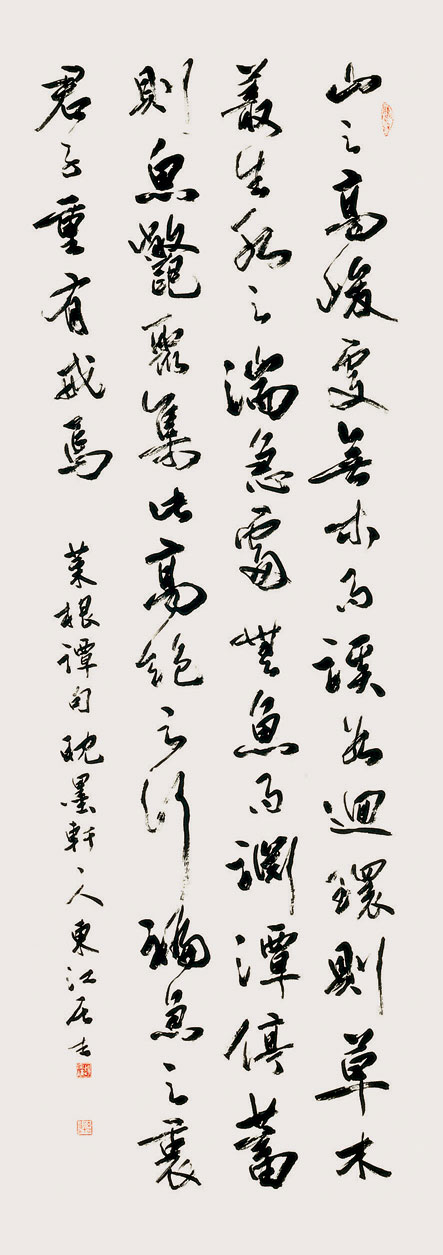 山之高峻處無木而谿谷迴環則草木
叢生水之湍急處無魚而淵潭停蓄
則魚鼈聚集此高絕之行褊急之衷
君子重有戒焉
菜根譚句 耽墨軒主人東江居士